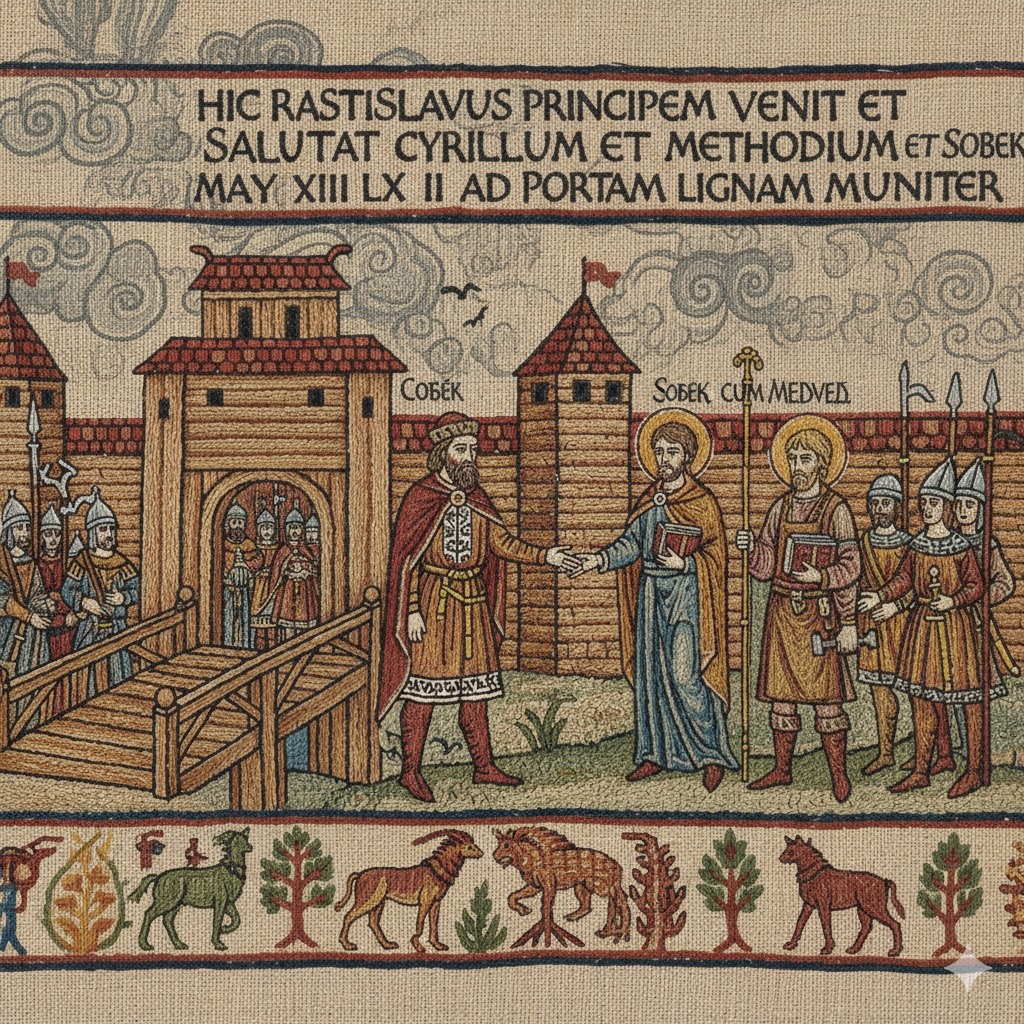 HIC RASTISLAVUS PRINCIPEM VENIT ET
SALUTAT CYRILLUM ET METHODIUM ET SOBEK
MAY XIII LX II AD PORTAM LIGNAM MUNITER
СОБЕК
SOBEK CUM MEDVED